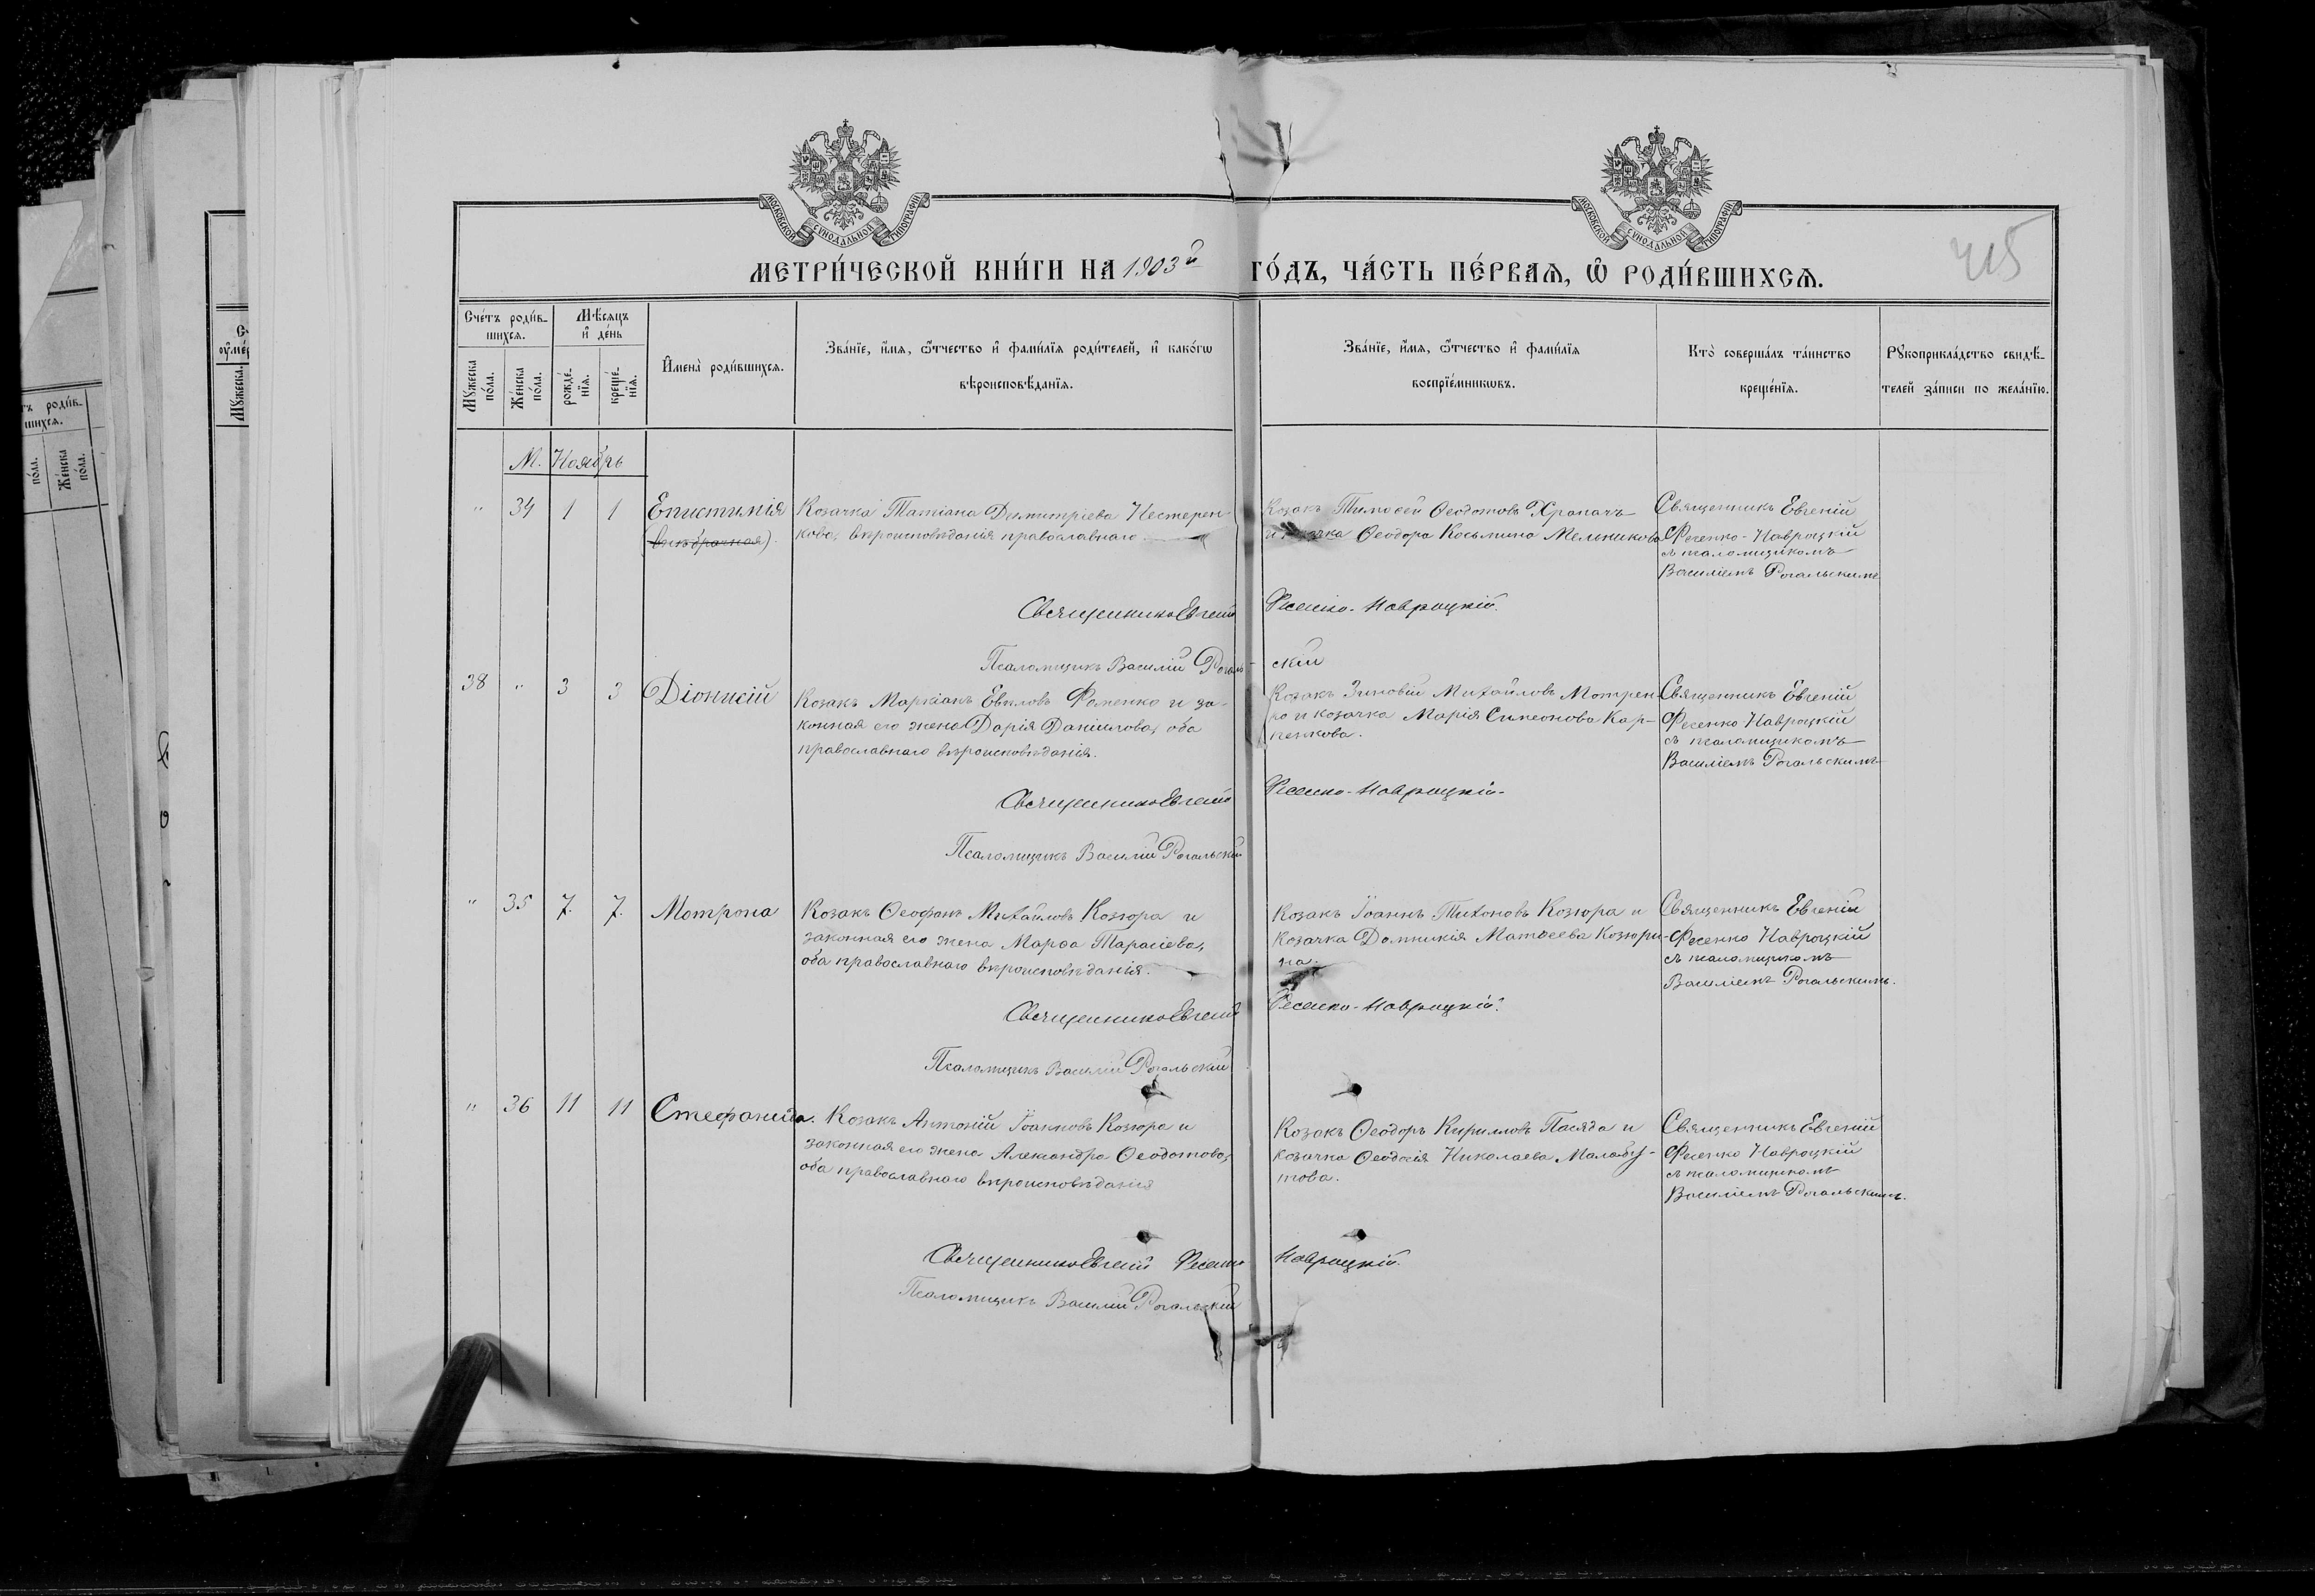 МОСКОВСКОЙ СУНОДАЛЬНОЙ ТИПОГРАФІИ
МОСКОВСКОЙ СУНОДАЛЬНОЙ ТИПОГРАФІИ
МЕТРИ́ЧЕСКОЙ КНИ́ГИ НА 1903й ГО́ДЪ, ЧА́СТЬ ПЕ́РВАЯ, Ѽ РОДИ́ВШИХСЯ.
415
Сче́тъ роди́в-
шихся.
Мѣ́сяцъ
и҆ де́нь
Мꙋ́жеска
по́ла.
Же́нска
по́ла.
рожде́-
нїя.
креще́-
нїя.
И҆мена̀ роди́вшихся.
Зва́нїе, и҆́мя, ѻ҆́тчество и҆ фами́лїя роди́телей, и҆ како́гѡ
вѣроисповѣ́данїя.
Зва́нїе, и҆́мя, ѻ҆́тчество и҆ фами́лїя
воспрїе́мникѡвъ.
Кто̀ соверша́лъ та́инство
креще́нїя.
Рꙋкоприкла́дство свидѣ́-
телей за́писи по жела́нїю.
М. Ноябрь
" 34 1 1 Епистимія
(внѣбрачная).
Козачка Татіана Димитріева Нестерен-
кова, вѣроисповѣданія православнаго
Козакъ Тимоѳей Ѳеодотовъ Храпачъ
и козачка Ѳеодора Косьмина Мельникова
Священникъ Евгеній
Фесенко-Навроцкій
съ псаломщикомъ
Василіемъ Рогальскимъ
Священникъ Евгеній Фесенко-Навроцкій.
Псаломщикъ Василій Рогаль-
скій
38 " 3 3 Діонисій
Козакъ Маркіанъ Евиловъ Фоменко и за-
конная его жена Дарія Даніилова, оба
православнаго вѣроисповѣданія.
Козакъ Зиновій Михайловъ Мотрен-
ко и козачка Марія Симеонова Кар-
пенкова.
Священникъ Евгеній
Фесенко Навроцкій
съ псаломщикомъ
Василіемъ Рогальскимъ
Священникъ Евгеній Фесенко-Навроцкій.
Псаломщикъ Василій Рогальскій
" 35 7. 7. Мотрона
Козакъ Ѳеофанъ Михайловъ Козюра и
законная его жена Марѳа Тарасіева,
оба православнаго вѣроисповѣданія.
Козакъ Іоаннъ Тихоновъ Козюра и
Козачка Домникія Матѳеева Козюри-
на.
Священникъ Евгеній
Фесенко Навроцкій
съ псаломщикомъ
Василіемъ Рогальскимъ.
Священникъ Евгеній Фесенко-Навроцкій.
Псаломщикъ Василій Рогальскій
" 36 11 11 Стефанида.
Козакъ Антоній Іоанновъ Козюра и
законная его жена Александра Ѳеодотова,
оба православнаго вѣроисповѣданія
Козакъ Ѳеодоръ Кирилловъ Пасяда и
козачка Ѳеодосія Николаева
Священникъ Евгеній
Фесенко Навроцкій
съ псаломщикомъ
Василіемъ Рогальскимъ.
Священникъ Евгеній Фесенко Навроцкій.
Псаломщикъ Василій Рогальскій